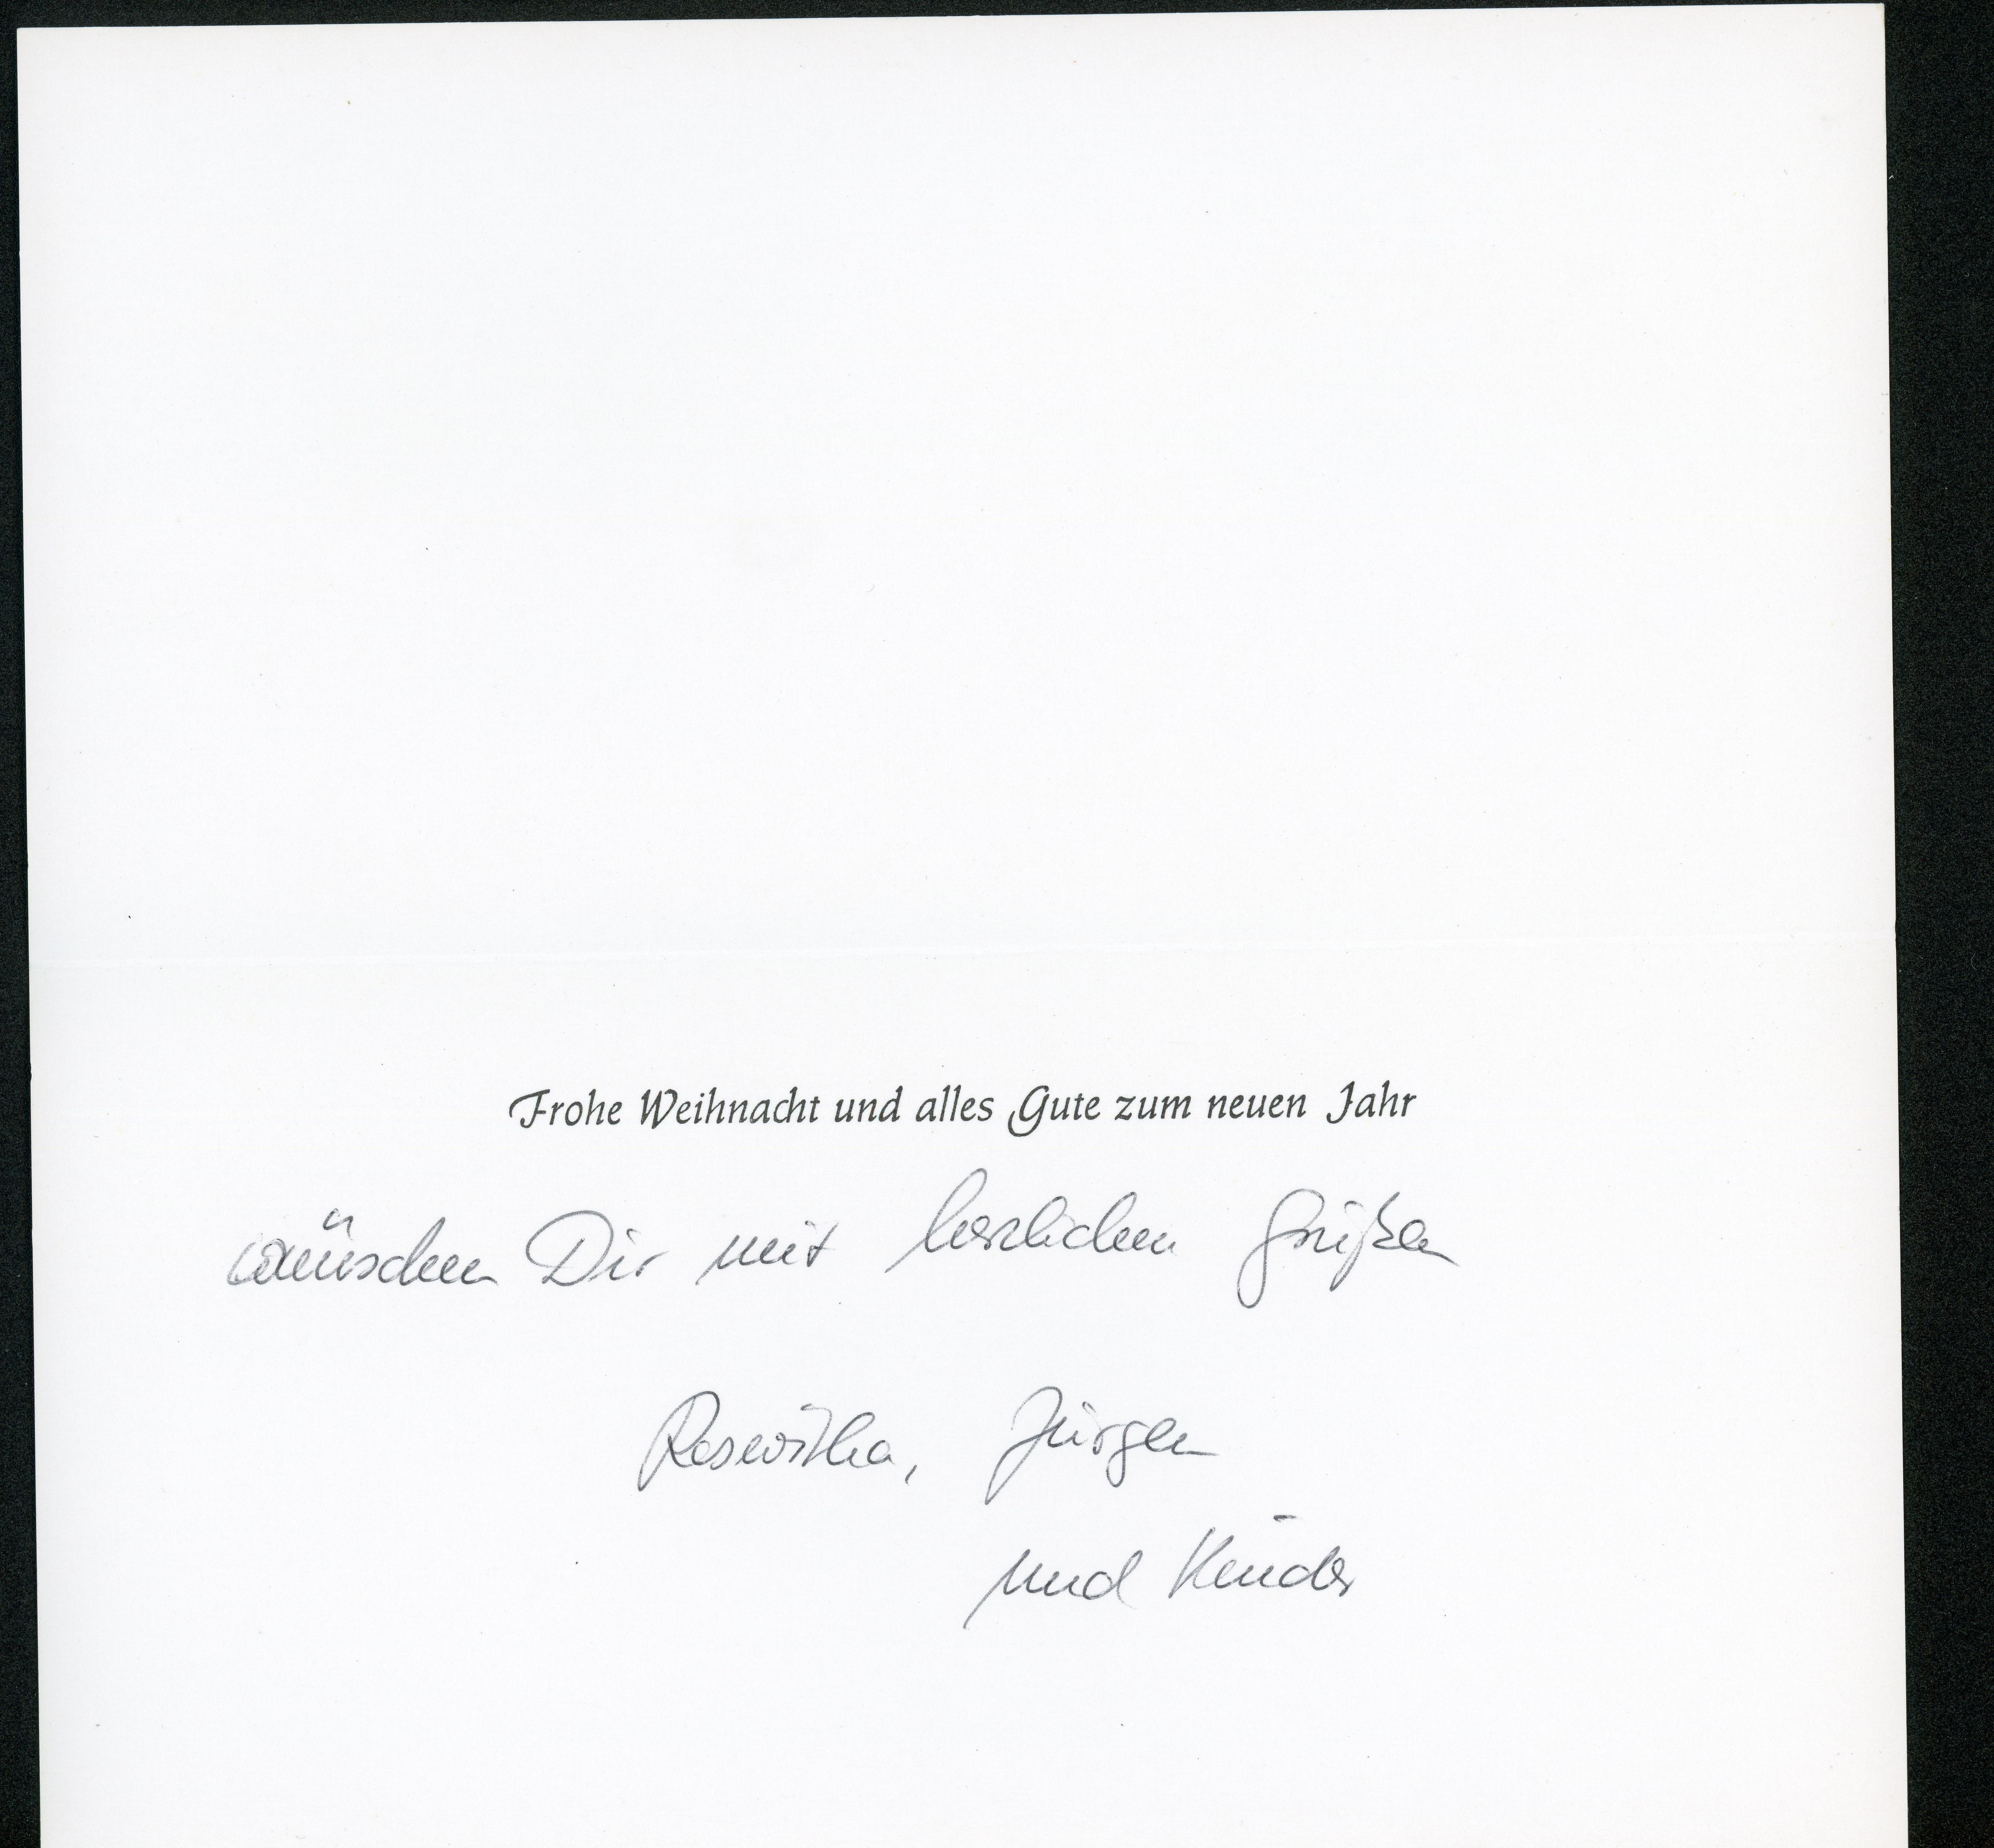 Frohe Weihnacht und alles Gute zum neuen Jahr
wünschen Dir mit herzlichen Grüßen
Roswitha, Jürgen
und Kinder